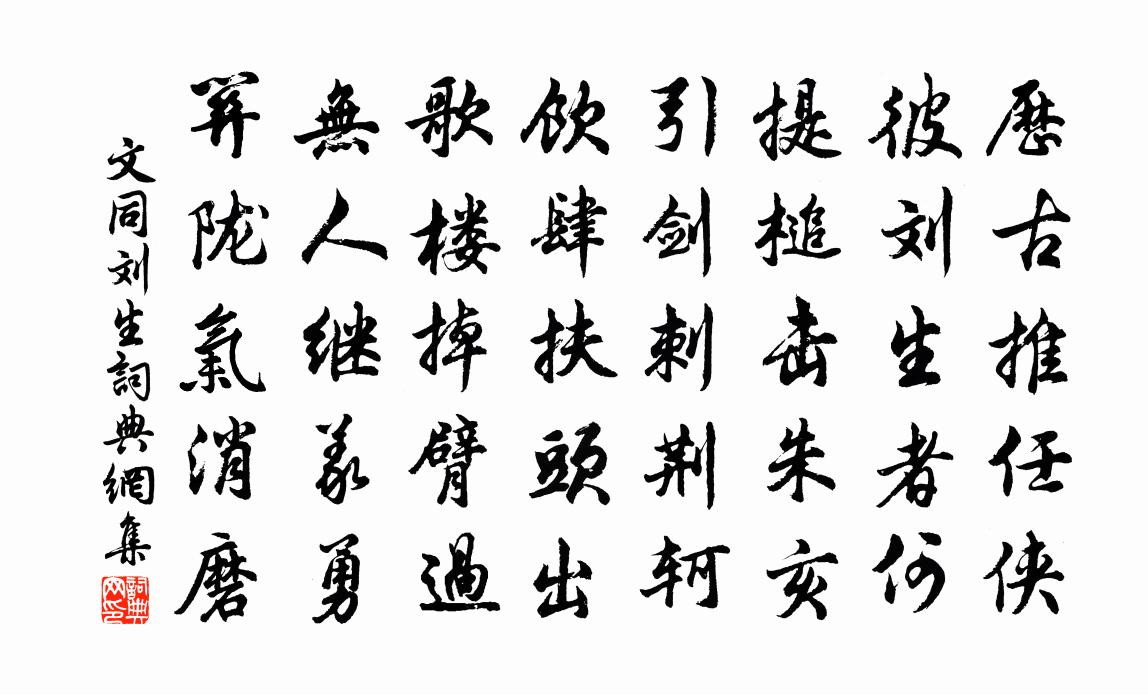 歷古推任侠
彼刘生者何
提槌击朱亥
引剑刺荆轲
饮肆扶頭出
歌楼掉臂過
無人继義勇
关陇氣消磨
文同刘生詞典網集
詞典
网印